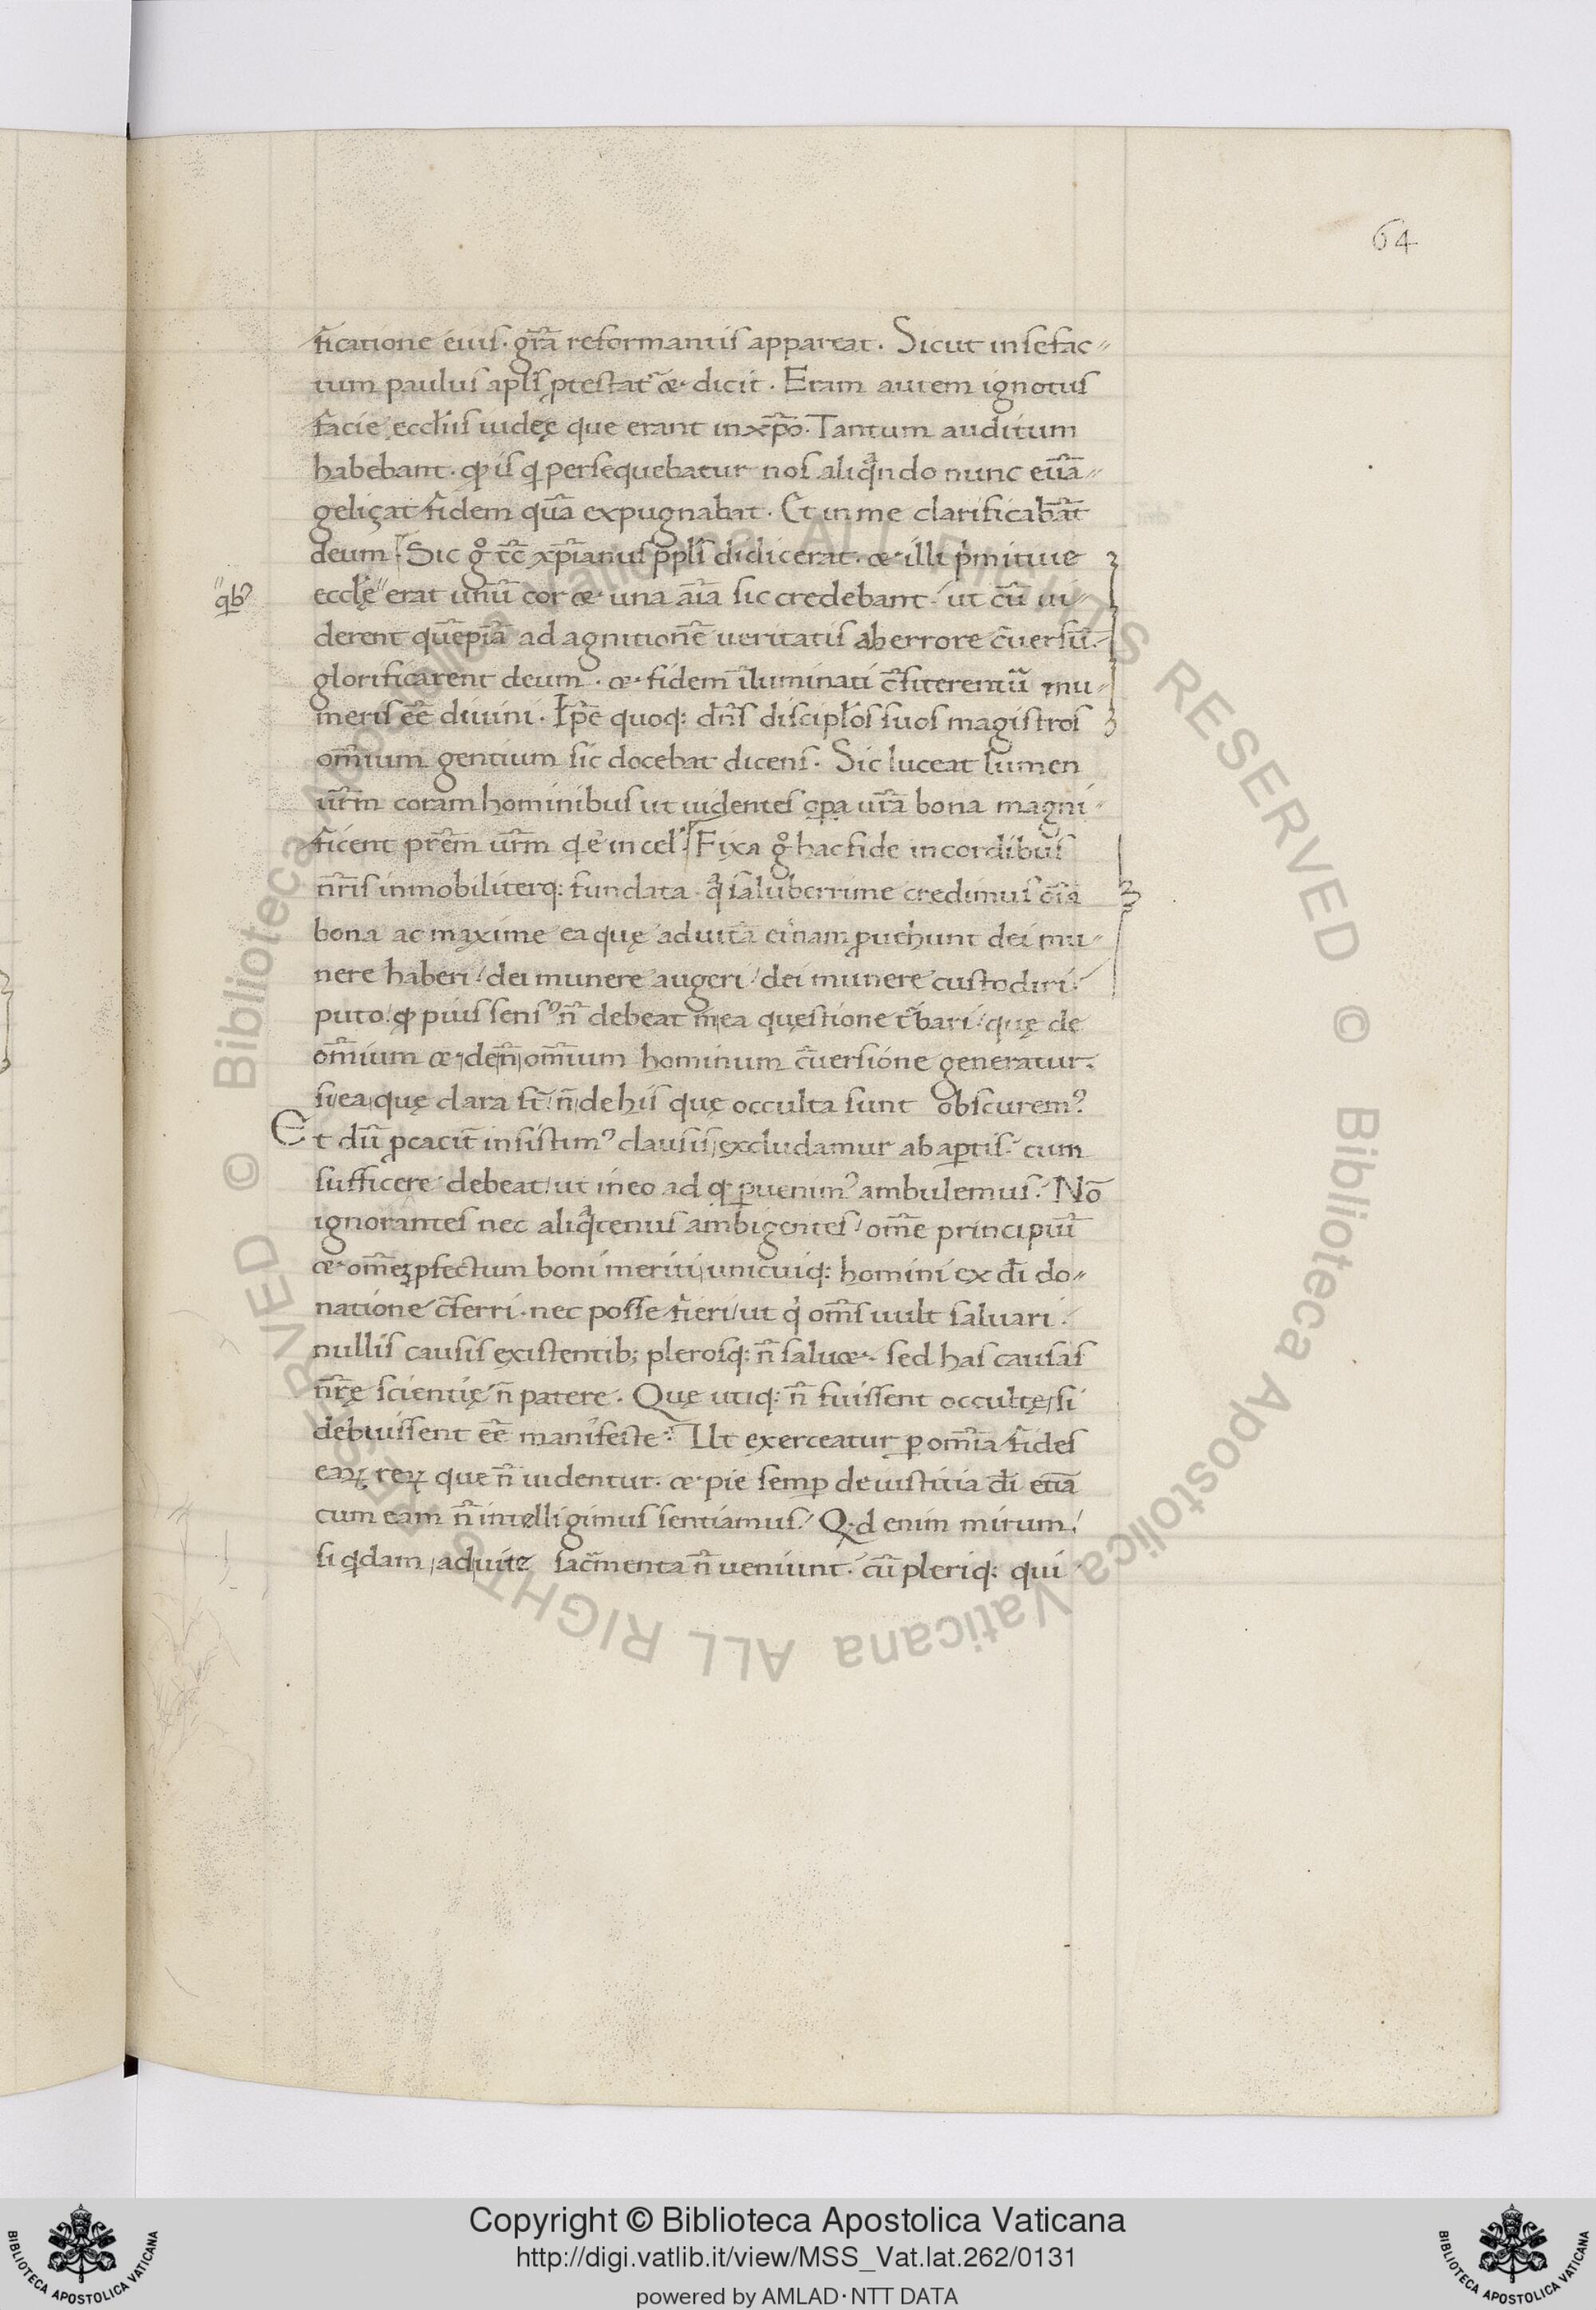 64
ficatione eius· gr̄a reformantis appareat. Sicut in se fac〃
tum paulus apl̄s p̱testat᷑ &· dicit. Eram autem ignotus
facie eccl̄iis iudeę que erant in xp̄o. Tantum auditum
habebant· qꝫ is q̇ persequebatur nos aliqᵃndo nunc euā〃
geliçat fidem quā expugnabat. Et in me clarificabāt
deum. Sic gͦ tc̄ xp̄ianus ppl̄s didicerat· &· illi pͥmitiue
qb᾽
eccl̄ę〃 erat unū cor &· una aīa sic credebant· ut cū ui〃
derent quēpiā ad agnitionē ueritatis ab errore c̄uersū·
glorificarent deum· &· fidem īluminati c̄fiterentū mu〃
neris eē̄ diuini. Ip̄e quoq: dn̄s discipl̄os suos magistros
om̄ium gentium sic docebat dicens. Sic luceat lumen
ur̄m coram hominibus ut uidentes oꝑa ur̄a bona magni〃
ficent pr̄em ur̄m q̇ ē in cel᾽. Fixa gͦ hac fide in cordibus
nr̄is inmobiliterq: fundata· qᵃ saluberrime credimus oīa
bona ac maxime ea quę ad uitā et̄nam ꝓuehunt dei mu〃
nere haberi/ dei munere augeri/ dei munere custodiri/
puto/ qꝫ pius sens᾽ n̄ debeat in ea quęstione t̄bari/ quę de
om̄ium &· de n̄ om̄ium hominum c̄uersione generatur·
si ea quę clara st̄/ n̄ de his quę occulta sunt obscurem᾽
Et dū ꝓcacit̄ insistim᾽ clausis/ excludamur ab aꝑtis/ cum
sufficere debeat/ ut in eo ad qꝫ ꝑuenim᾽ ambulemus/ Nō
ignorantes nec aliqᵃtenus ambigentes/ om̄e principiū
&· om̄eꝫ ꝓfectum boni meriti/ unicuiq: homini ex d̄i do〃
natione c̄ferri· nec posse fieri/ ut qͥ om̄s uult saluari/
nullis causis existentib; plerosq: n̄ salu&· sed has causas
nr̄ę scientię n̄ patere. Quę utiq: n̄ fuissent occultę/ si
debuissent eē̄ manifeste: Ut exerceatur ꝑ om̄ia fides
eaꝝ reꝝ que n̄ uidentur· &· pie semꝑ de iustitia d̄i etiā
cum eam n̄ intelligimus sentiamus/ Qd enim mirum/
si q̇dam ad uitę sac̄menta n̄ ueniunt· cū pleriq: qui
Copyright © Biblioteca Apostolica Vaticana
http://digi.vatlib.it/view/MSS_Vat.lat.262/0131
powered by AMLAD·NTT DATA